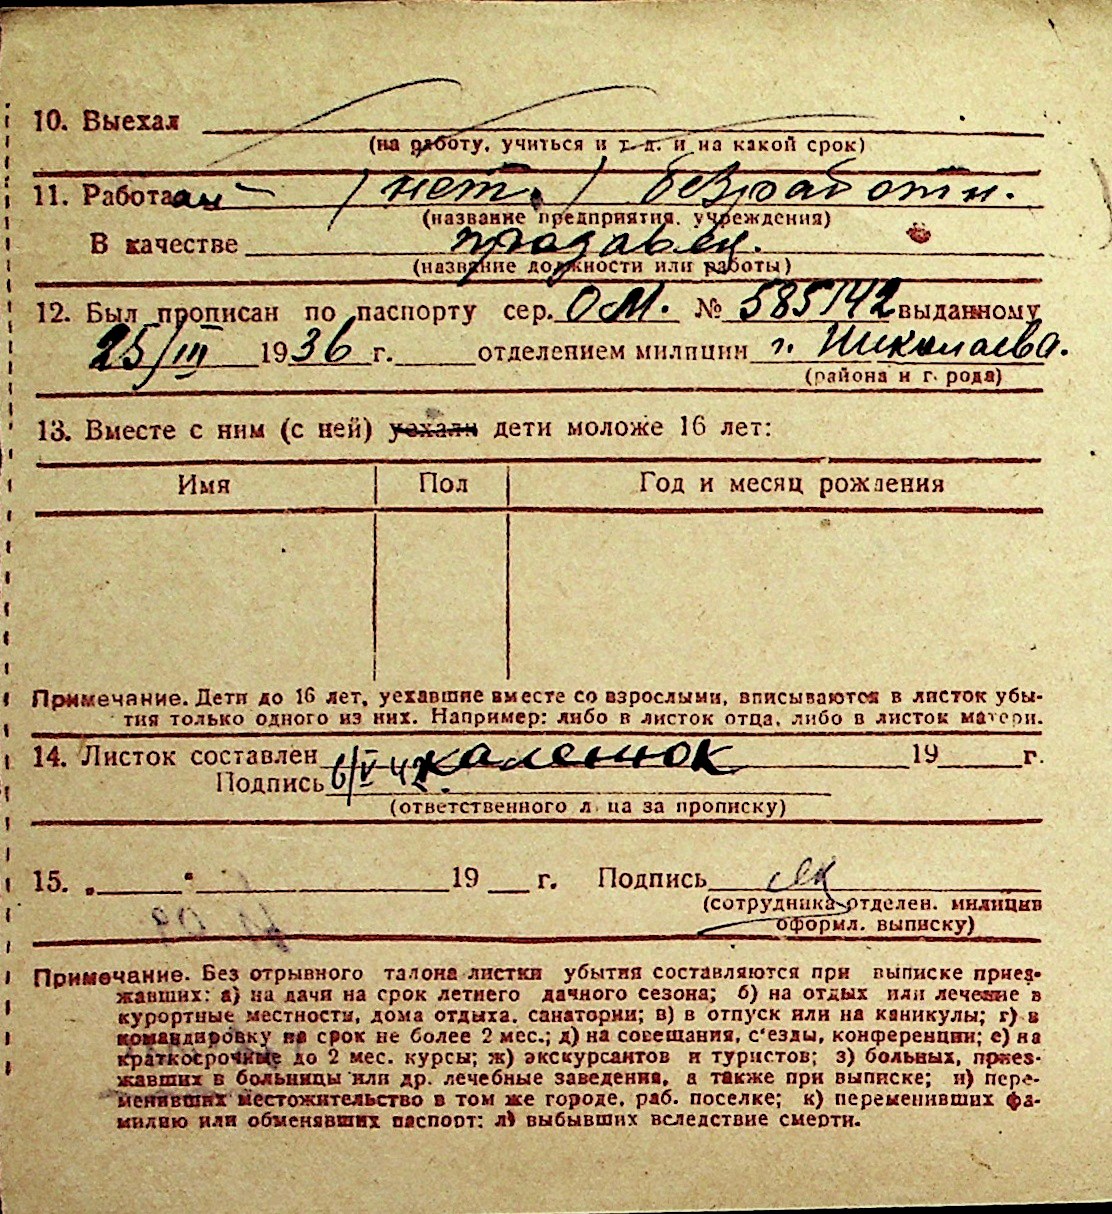 10. Выехал
(на работу, учиться и т. д. и на какой срок)
11. Работал (нет.) безработн.
(название предприятия, учреждения)
В качестве продавец.
(название должности или работы)
12. Был прописан по паспорту сер. ОМ. № 585142 выданному
25/III 1936 г. отделением милиции г. Николаева.
(района и города)
13. Вместе с ним (с ней) уехали дети моложе 16 лет:
Имя Пол Год и месяц рождения
Примечание. Дети до 16 лет, уехавшие вместе со взрослыми, вписываются в листок убы-
тия только одного из них. Например: либо в листок отца, либо в листок матери.
14. Листок составлен 19 г.
Подпись 6/V 42.
(ответственного лица за прописку)
15. „ " 19 г. Подпись
(сотрудника отделен. милиции
оформл. выписку)
Примечание. Без отрывного талона листки убытия составляются при выписке приез-
жавших: а) на дачи на срок летнего дачного сезона; б) на отдых или лечение в
курортные местности, дома отдыха, санатории; в) в отпуск или на каникулы; г) в
командировку на срок не более 2 мес.; д) на совещания, с'езды, конференции; е) на
краткосрочные до 2 мес. курсы; ж) экскурсантов и туристов; з) больных, приез-
жавших в больницы или др. лечебные заведения, а также при выписке; и) пере-
менивших местожительство в том же городе, раб. поселке; к) переменивших фа-
милию или обменявших паспорт; л) выбывших вследствие смерти.